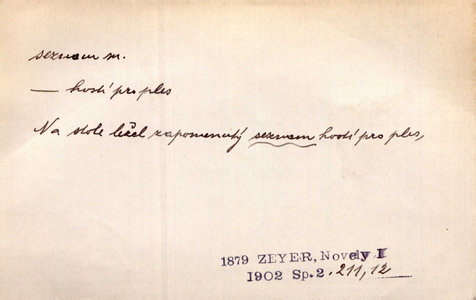 seznam m.
— hostí pro ples
Na stole ležel zapomenutý seznam hostí pro ples,
1879 ZEYER, Novely I
1902 Sp. 2. 211, 12